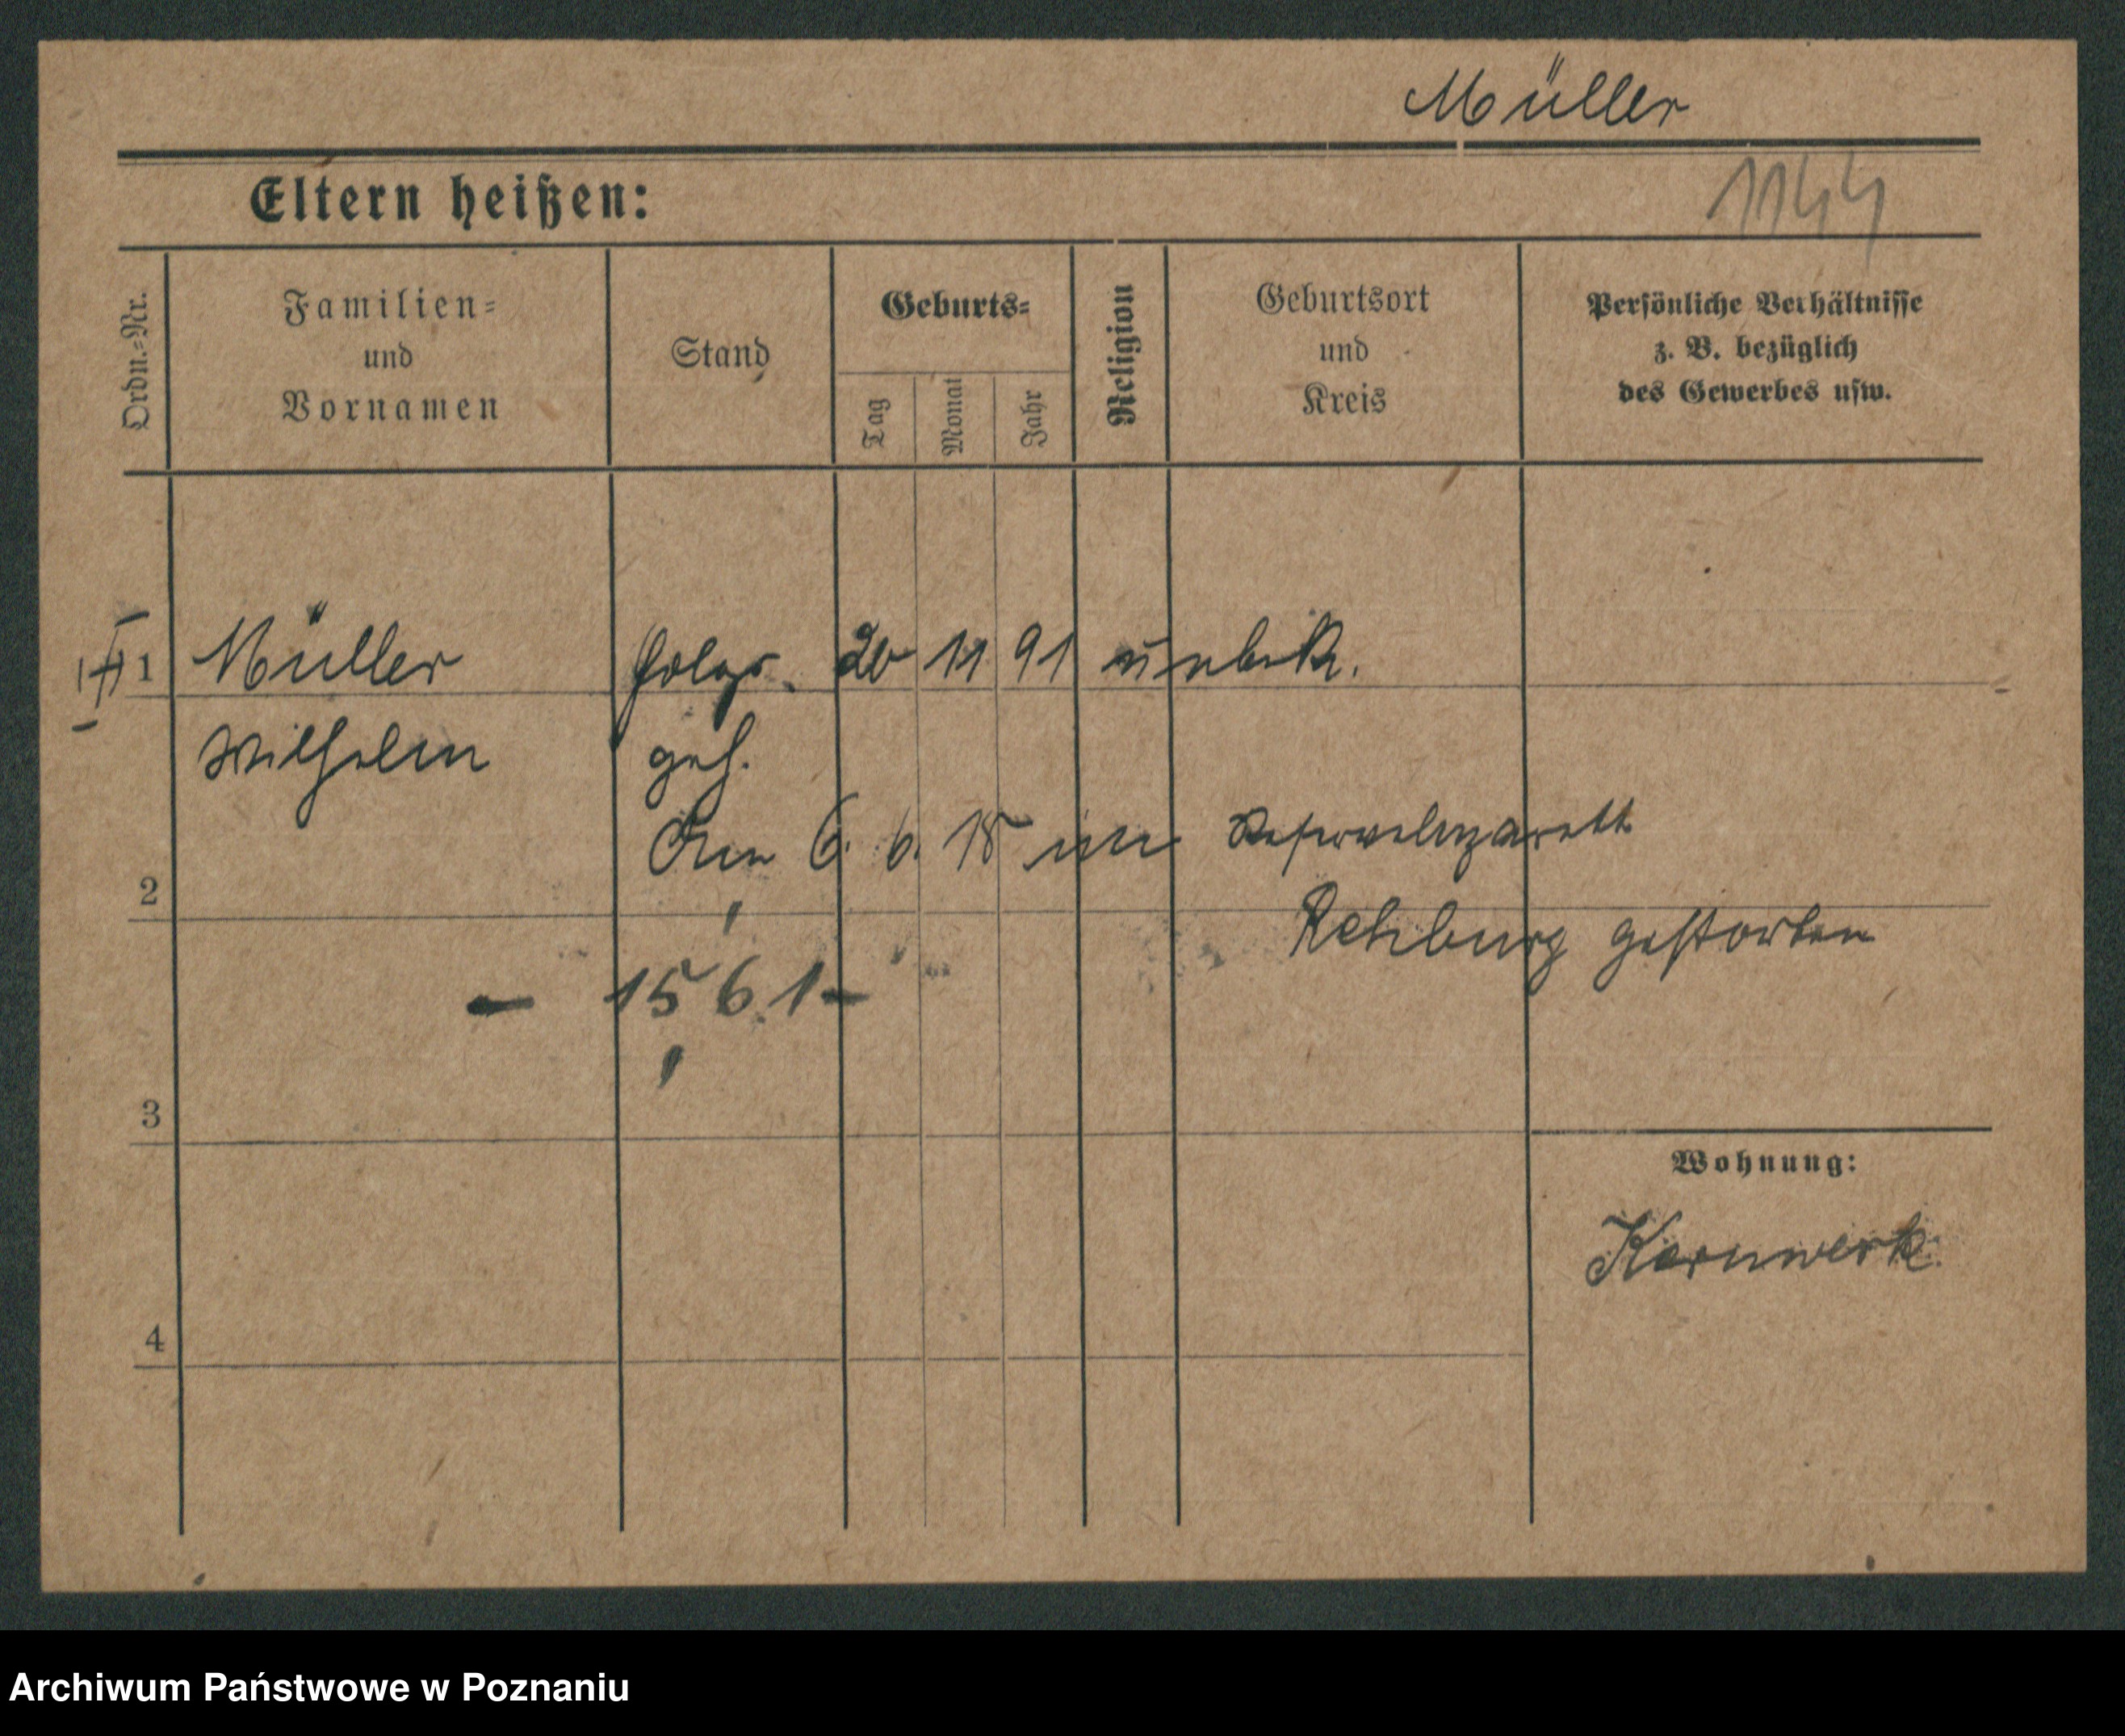 Müller
Eltern heißen:
1144
Ordn.=Nr.
Familien=
und
Vornamen
Stand
Geburts=
Tag
Monat
Jahr
Religion
Geburtsort
und
Kreis
Persönliche Verhältnisse
z. B. bezüglich
des Gewerbes usw.
1 Müller 11 91 unbek.
Wilhelm
Am 6. 6. 18 im Reservelazarett
2
Rehburg gestorben
- 1561 -
3
Wohnung:
Kernwerk.
4
Archiwum Państwowe w Poznaniu